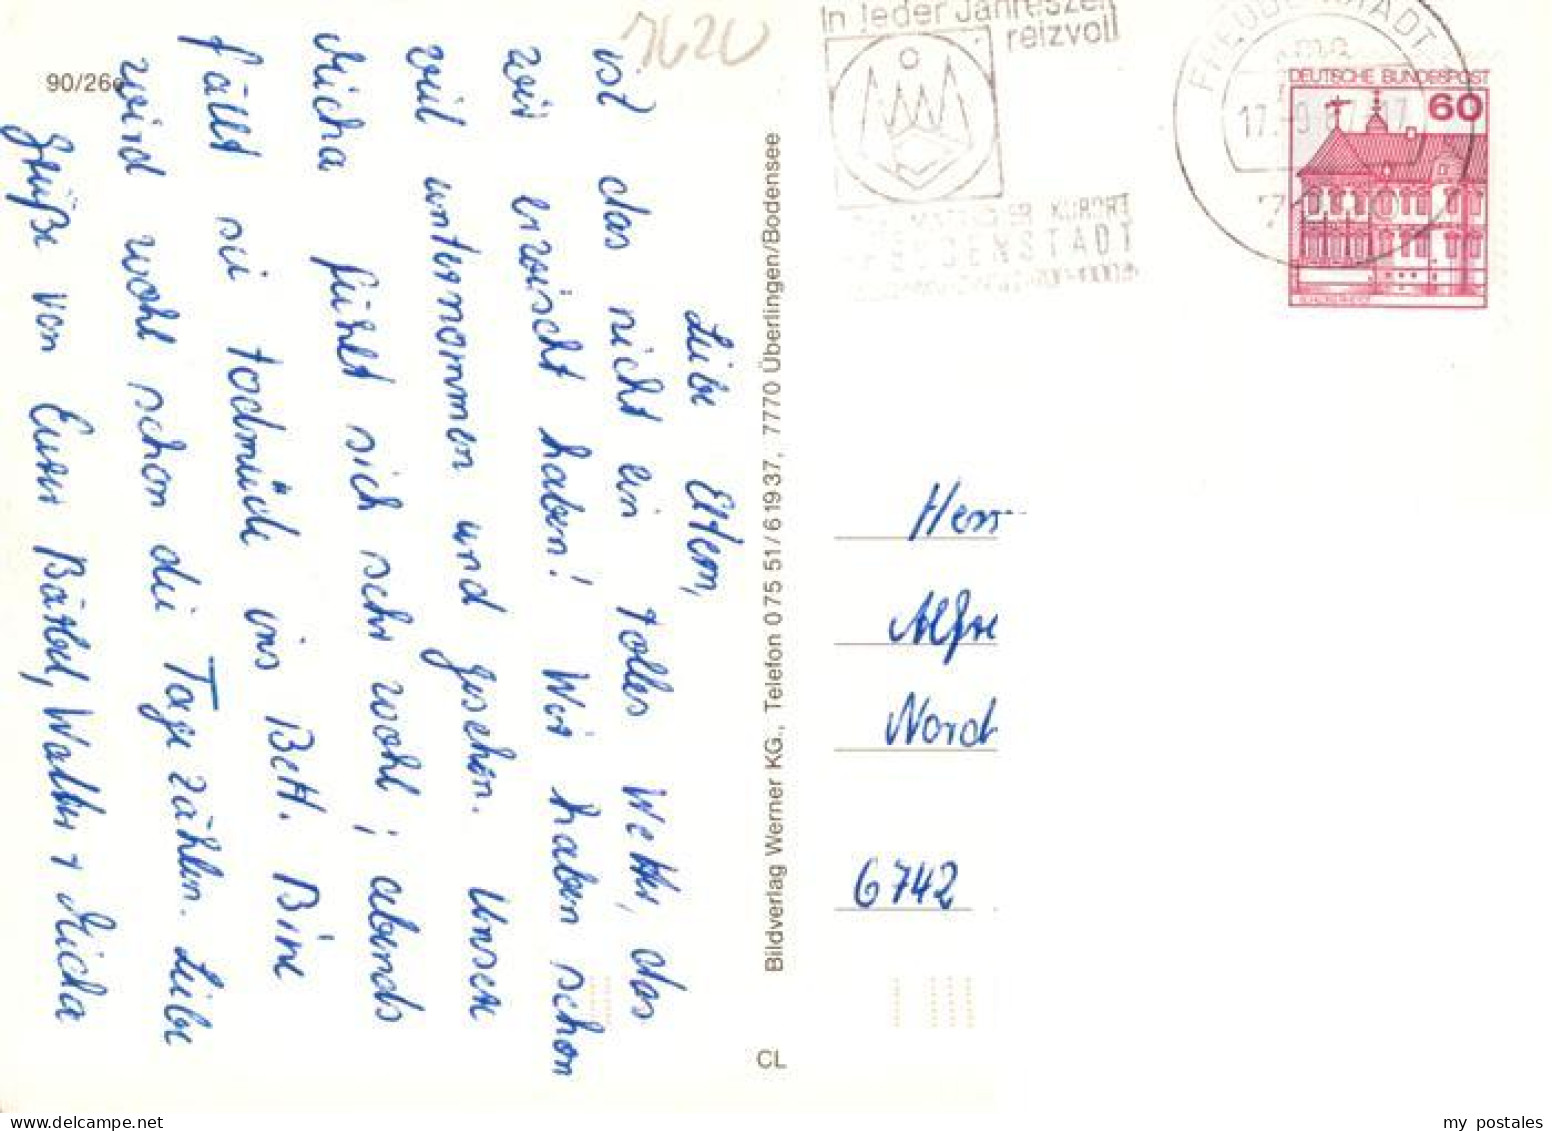 90/266
7620
Liebe Eltern,
ist das nicht ein tolles Wetter, das
wir erwischt haben! Wir haben schon
viel unternommen und gesehen. Unsere
Micha fühlt sich sehr wohl; abends
fällt sie todmüde ins Bett. Bine
wird wohl schon die Tage zählen. Liebe
Grüße von Eurer Bärbel, Walter + Micha
Bildverlag Werner KG., Telefon 0 75 51/6 19 37, 7770 Überlingen/Bodensee
CL
In jeder Jahreszeit
reizvoll
KURORT
FREUDENSTADT
FREUDENSTADT
DEUTSCHE BUNDESPOST
60
Herr
Alfre
Nord
6742
my postales